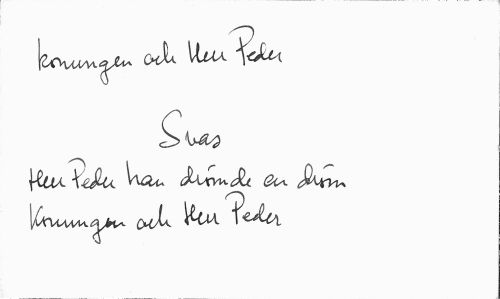 konungen och Herr Peder
Svas
Herr Peder han drömde en dröm
Konungen och Herr Peder